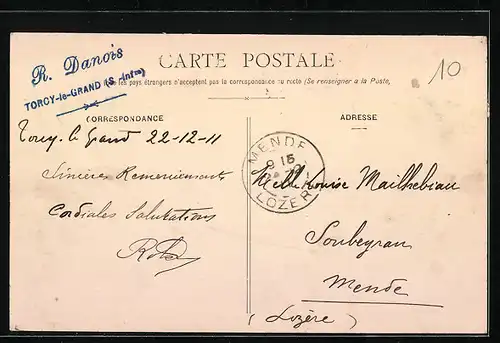 R. Danois
TORCY-le-GRAND (S.-Infre)
CARTE POSTALE
pays étrangers n'acceptent pas la correspondance au recto (Se renseigner à la Poste)
10
CORRESPONDANCE
ADRESSE
Torcy le Grand 22-12-11
Sincères Remerciements
Cordiales Salutations
MENDE
9 15
LOZERE
Melle Louise Mailhebiau
Soubeyran
Mende
(Lozère)